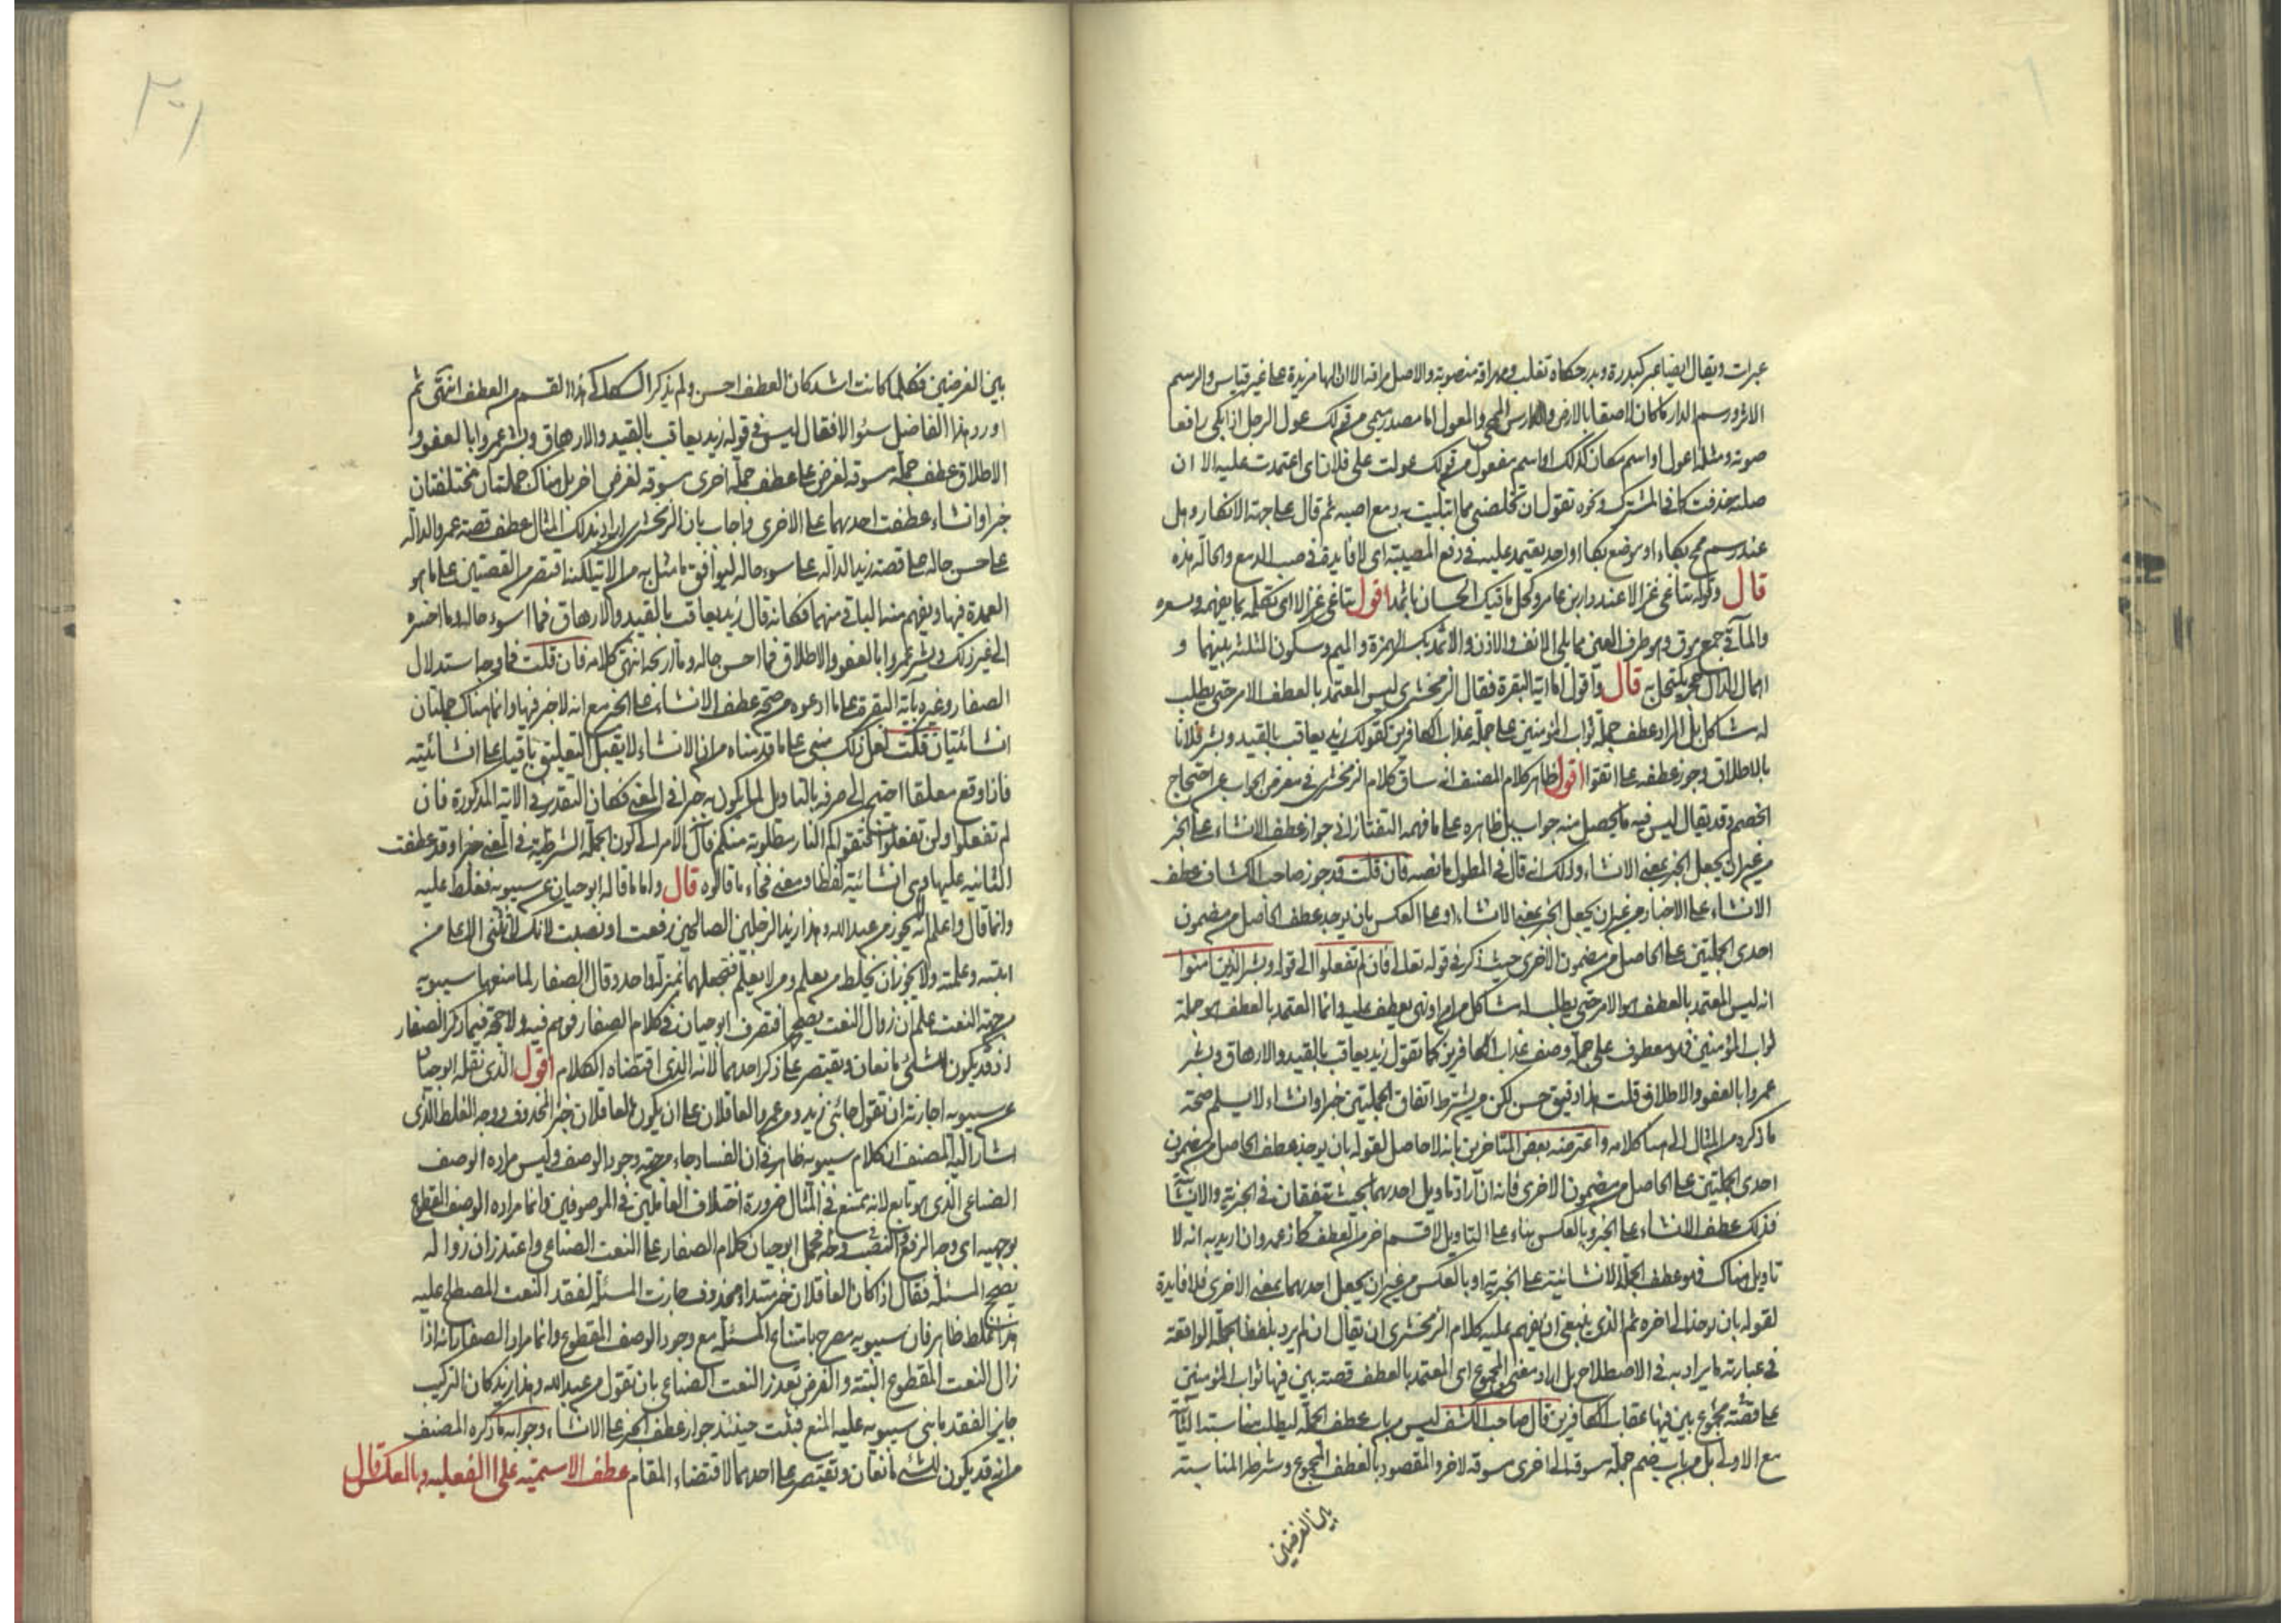 عبرات ويقال ايضا عبر كبدرة وبدر حكاه ثعلب ومهراقة منصوبة والاصل مراقة الا ان الهاء مزيدة على غير قياس والرسم
الاثر ورسم الدار ما كان لاصقا بالارض والدارس الممحي والمعول اما مصدر ميمي من قولك عول الرجل اذا بكى رافعا
صوته ومثله اعول او اسم مكان كذلك او اسم مفعول من قولك عولت على فلان اي اعتمدت عليه الا ان
صلته حذفت كما في المشترك ونحوه تقول ان تخلصني مما ابتليت به دمع اصبه ثم قال على جهة الانكار وهل
عند رسم محل بكاء او موضع بكاء او احد يعتمد عليه في دفع المصيبة اي لا فايدة في صب الدمع والحالة هذه
قال وقوله تناغي غزالا عند دار ابن عامر وكحل ماقيك الحسان باثمد اقول تناغي غزالا اي تكلمه بما يفهم ويسره
والمآقي جمع موق وهو طرف العين مما يلي الانف والاذن والاثمد بكسر الهمزة والميم وسكون المثلثة بينهما و
اهمال الدال حجر يكتحل به قال واقول اما اية البقرة فقال الزمخشري ليس المعتمد بالعطف الامر حتى يطلب
له مشاكل بل المراد عطف جملة ثواب المؤمنين على جملة عذاب الكافرين كقولك زيد يعاقب بالقيد وبشر فلانا
بالاطلاق وجوز عطفه على اتقوا اقول ظاهر كلام المصنف انه ساق كلام الزمخشري في معرض الجواب عن احتجاج
الخصم وقد يقال ليس فيه ما يحصل منه جواب بل ظاهره على ما فهمه التفتازاني جواز عطف الانشاء على الخبر
من غير ان يجعل الخبر بمعنى الانشاء وذلك انه قال في المطول ما نصه فان قلت قد جوز صاحب الكشاف عطف
الانشاء على الاخبار من غير ان يجعل الخبر بمعنى الانشاء او على العكس بان يوجد عطف الحاصل من مضمون
احدى الجملتين على الحاصل من مضمون الاخرى حيث ذكر في قوله تعالى فان لم تفعلوا الى قوله وبشر الذين امنوا
انه ليس المعتمد بالعطف هو الامر حتى يطلب له مشاكل من امر او نهي يعطف عليه وانما المعتمد بالعطف هو جملة
ثواب المؤمنين فهو معطوف على جملة وصف عذاب الكافرين كما تقول زيد يعاقب بالقيد والارهاق وبشر
عمروا بالعفو والاطلاق قلت هذا دقيق حسن لكن من يشترط اتفاق الجملتين خبرا وانشاء لا يسلم صحة
ما ذكره من المثال الى هنا كلامه واعترضه بعض المتاخرين بانه لا حاصل لقوله بان يوجد عطف الحاصل من مضمون
احدى الجملتين على الحاصل من مضمون الاخرى فانه ان اراد تاويل احديهما بحيث يتفقان في الخبرية والانشائية
فذلك عطف الانشاء على الخبر وبالعكس بناء على التاويل لا قسم اخر من العطف كما زعمه وان اريد به انه لا
تاويل هناك فهو عطف الجملة الانشائية على الخبرية او بالعكس من غير ان يجعل احديهما بمعنى الاخرى فلا فايدة
لقوله بان يوجد الى اخره ثم الذي ينبغي ان يفهم عليه كلام الزمخشري ان يقال ان لم يرد بلفظ الجملة الواقعة
في عبارته ما يراد به في الاصطلاح بل اراد معنى المجموع اي المعتمد بالعطف قصة بين فيها ثواب المؤمنين
على قصة مجموع بين فيها عقاب الكافرين قال صاحب الكشف ليس من باب عطف الجملة ليطلب مناسبة الثانية
مع الاولى بل من باب ضم جملة سوقت الى اخرى مسوقة لاخر والمقصود بالعطف المجموع وشرط المناسبة
بين الغرضين
بين الغرضين فكلما كانت اشد كان العطف احسن ولم يذكر السكاكي هذا القسم من العطف انتهى ثم
اورد هذا الفاضل سئوالا فقال ليس في قوله زيد يعاقب بالقيد والارهاق وبشر عمروا بالعفو و
الاطلاق عطف جملة مسوقة لغرض على عطف جملة اخرى مسوقة لغرض اخر بل هناك جملتان مختلفتان
خبرا وانشاء عطفت احديهما على الاخرى واجاب بان الزمخشري اراد بذلك المثال عطف قصة عمرو الدالة
على حسن حاله على قصة زيد الدالة على سوء حاله ليوافق ما مثل به من الاية لكنه اقتصر من القصتين على ما هو
العمدة فيها ويفهم منه الباقي منهما فكانه قال زيد يعاقب بالقيد والارهاق فما اسوء حاله وما اخسره
الى غير ذلك وبشر عمروا بالعفو والاطلاق فما احسن حاله وما اربحه انتهى كلامه فان قلت فما وجه استدلال
الصفار وغيره باية البقرة على ما ادعوه من صحة عطف الانشاء على الخبر مع انه لا خبر فيها وانما هناك جملتان
انشائيتان قلت لعل ذلك مبني على ما قدمناه من ان الانشاء لا يقبل التعليق باقيا على انشائيته
فاذا وقع معلقا احتيج الى صرفه بالتاويل لما يكون به خبرا في المعنى فكان التقدير في الاية المذكورة فان
لم تفعلوا ولن تفعلوا فتقواكم النار مطلوبة منكم فال الامر الى كون الجملة الشرطية في المعنى خبرا وقد عطفت
الثانية عليها وهي انشائية لفظا ومعنى فجاء ما قالوه قال واما ما قاله ابو حيان عن سيبويه فغلط عليه
وانما قال واعلم انه لا يجوز من عبد الله وهذا زيد الرجلين الصالحين رفعت او نصبت لانك لا تثني الا على من
اثبته وعلمته ولا يجوز ان تخلط من يعلم ومن لا يعلم فتجعلهما بمنزلة واحدة وقال الصفار لما منعها سيبويه
من جهة النعت علم ان زوال النعت يصححها فتصرف ابو حيان في كلام الصفار فوهم فيه ولا حجة فيما ذكر الصفار
اذ قد يكون للشئ مانعان ويقتصر على ذكر احدهما لانه الذي اقتضاه الكلام اقول الذي نقله ابو حيان
عن سيبويه اجازته ان تقول جائني زيد ومن عمرو العاقلان على ان يكون العاقلان خبرا لمحذوف ووجه الغلط الذي
اشار اليه المصنف ان كلام سيبويه ظاهر في ان الفساد جاء من جهة وجود الوصف وليس مراده الوصف
الصناعي الذي هو تابع لانه يمتنع في المثال ضرورة اختلاف العاملين في الموصوفين وانما مراده الوصف المقطوع
بوجهيه اي وجه الرفع والنصب فحمل ابو حيان كلام الصفار على النعت الصناعي واعتقد ان زواله
يصحح المسئلة فقال اذا كان العاقلان خبر مبتداء محذوف جازت المسئلة لفقد النعت المصطلح عليه
هذا غلط ظاهر فان سيبويه مصرح بامتناع المسئلة مع وجود الوصف المقطوع وانما مراد الصفار انه اذا
زال النعت المقطوع البتة والغرض تعذر النعت الصناعي بان تقول من عبد الله وهذا زيد كان التركيب
جايز الفقد ما بنى سيبويه عليه المنع فيثبت حينئذ جواز عطف الخبر على الانشاء وجوابه ما ذكره المصنف
من انه قد يكون للشئ مانعان ويقتصر على احدهما لاقتضاء المقام عطف الاسمية على الفعلية وبالعكس قال